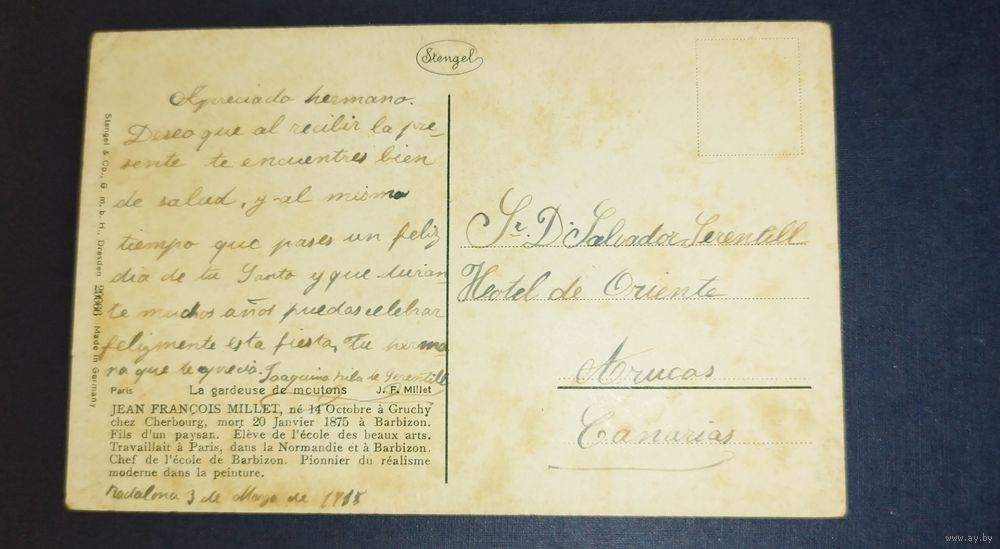 Stengel
Apreciado hermano.
Deseo que al recibir la pre-
sente te encuentres bien
de salud, y al mismo
tiempo que pases un feliz
dia de tu Santo y que duran
te muchos años puedas celebrar
felizmente esta fiesta, tu herma
na que te aprecia. Joaquina de Serentill
Paris La gardeuse de moutons J. F. Millet
JEAN FRANÇOIS MILLET, né 14 Octobre à Gruchy
chez Cherbourg, mort 20 Janvier 1875 à Barbizon.
Fils d'un paysan. Elève de l'école des beaux arts.
Travaillait à Paris, dans la Normandie et à Barbizon.
Chef de l'école de Barbizon. Pionnier du réalisme
moderne dans la peinture.
Badalona 3 de de
Stengel & Co., G. m. b. H., Dresden Made in Germany
Sr. D. Salvador Serentill
Hotel de Oriente
Arucas
Canarias
www.ay.by